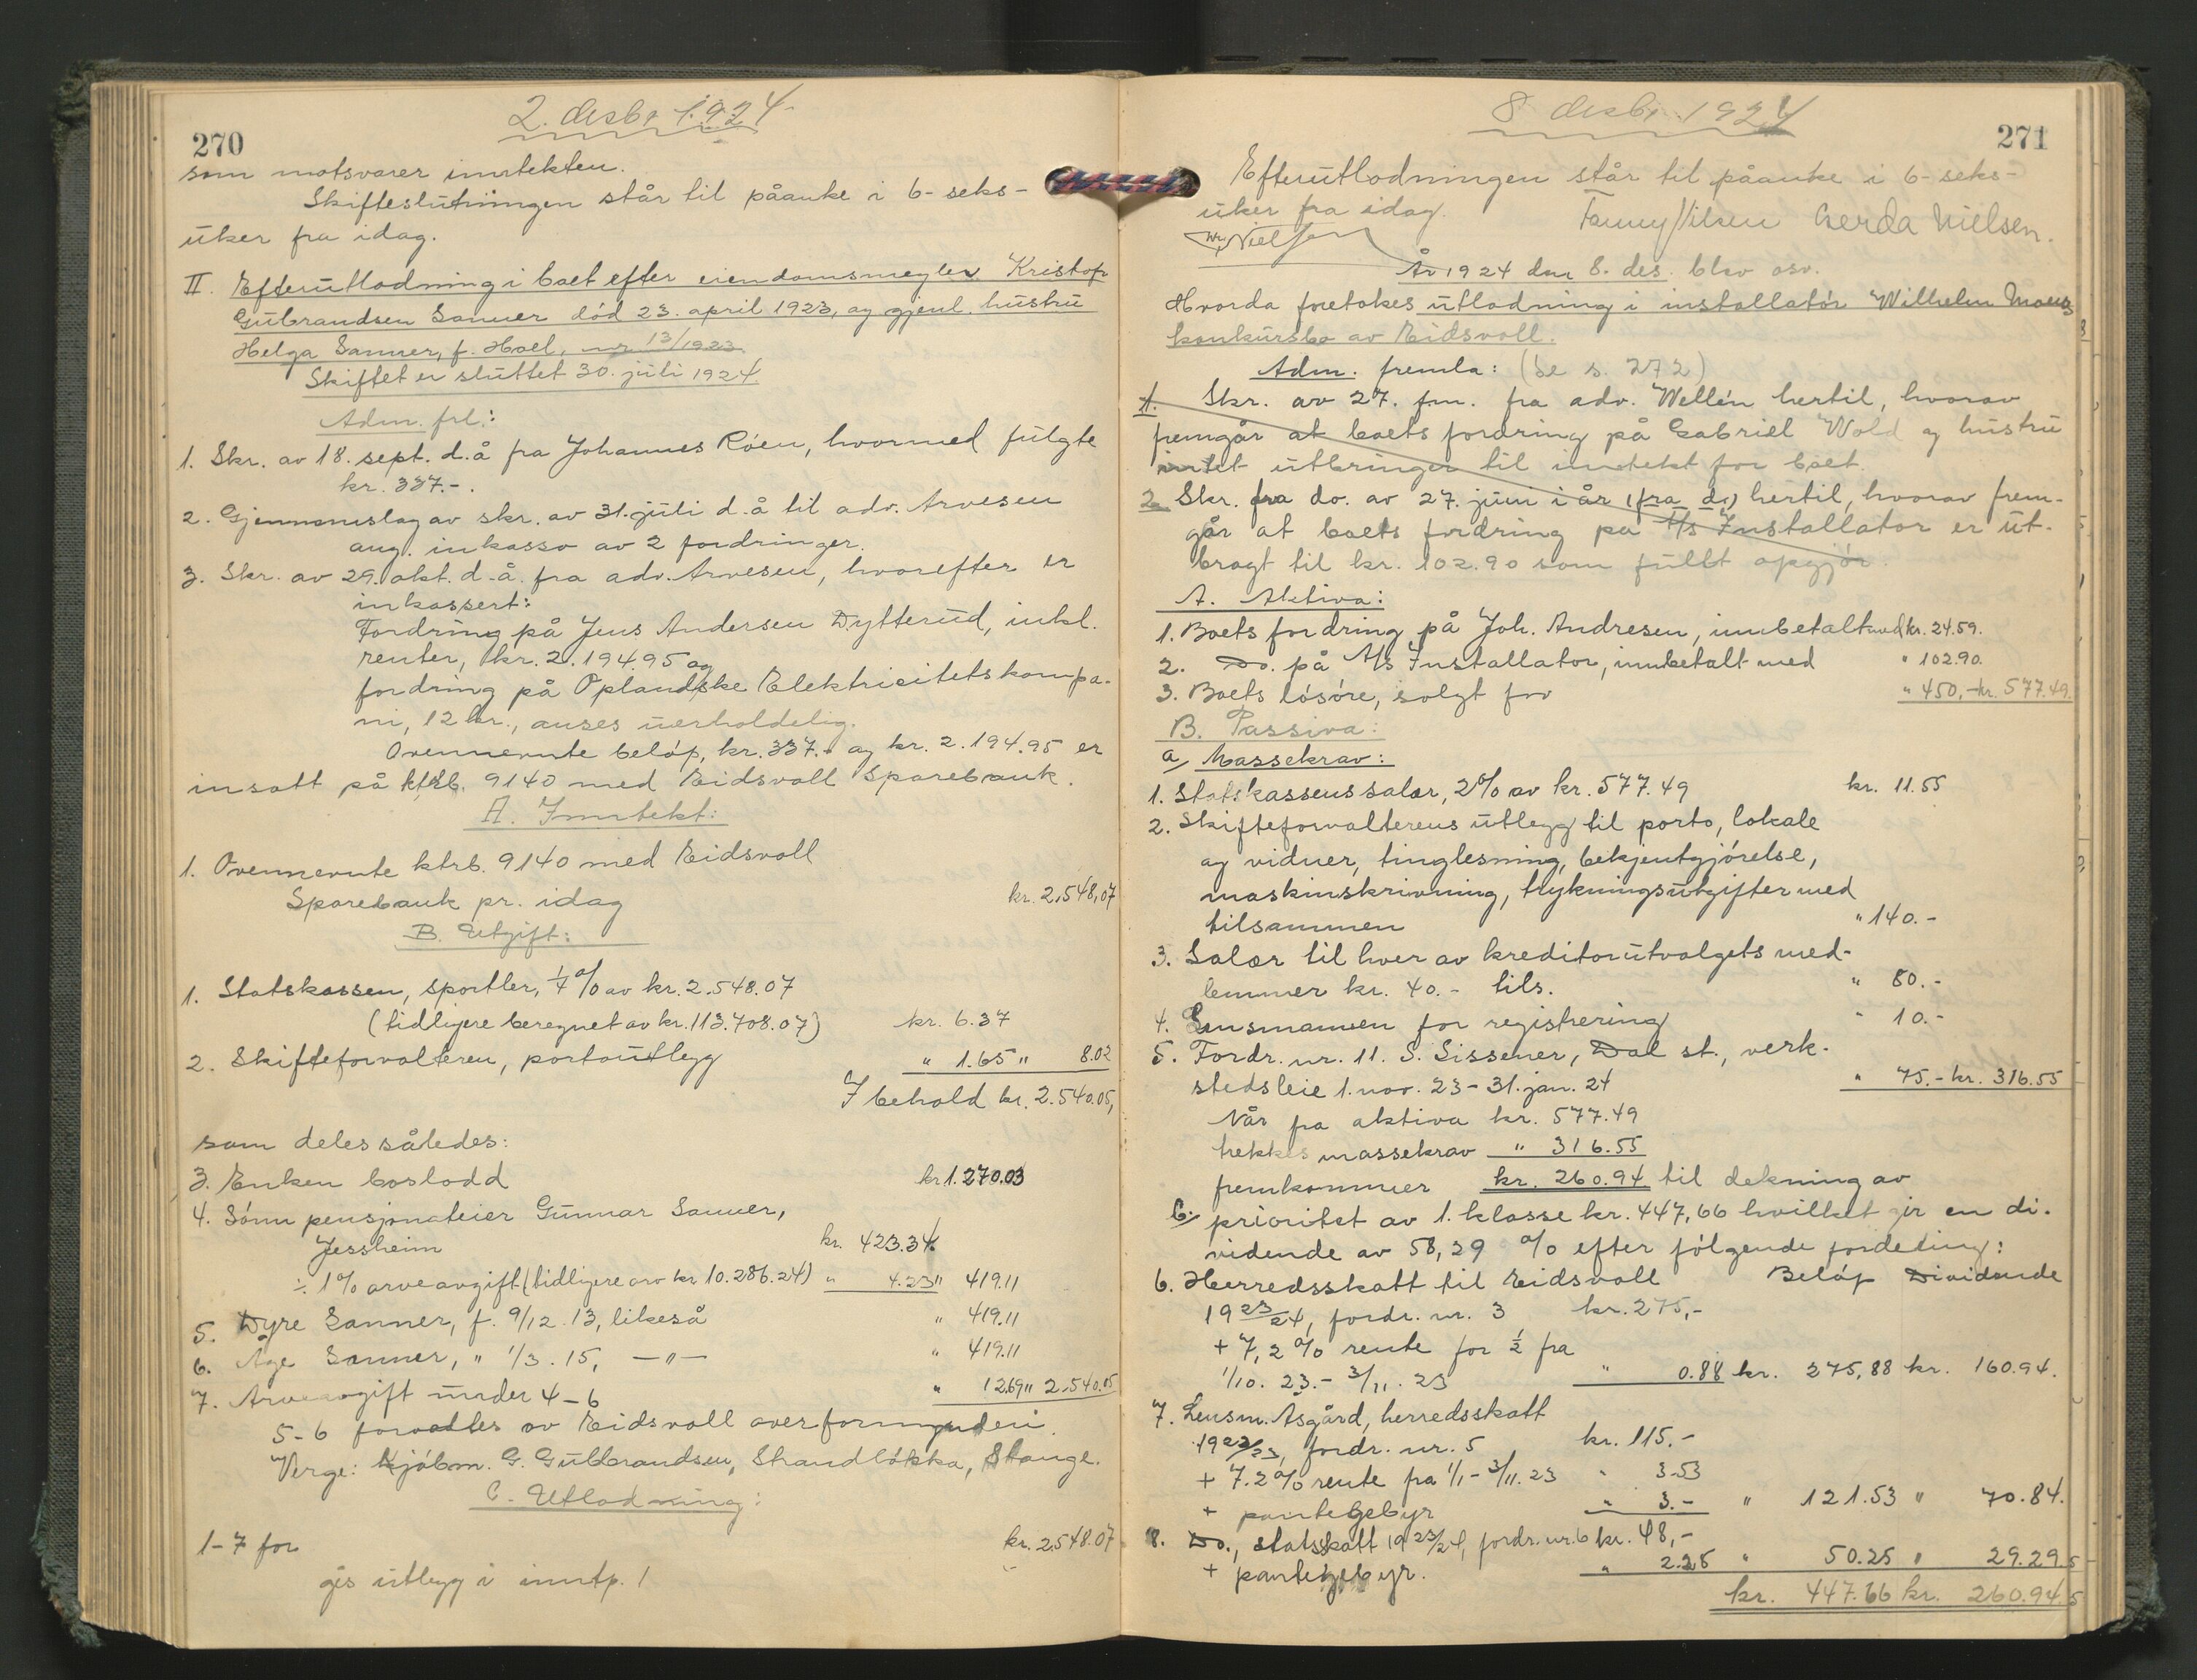 2. desbr 1924
270
som motsvarer inntekten.
Skifteslutningen står til påanke i 6-seks-
uker fra idag.
II. Efterutlodning i boet efter eiendomsmegler Kristofr
Gulbrandsen Sanner död 23. april 1923, og gjenl. hustru
Helga Sanner, f. Hoel, nr 13/1923.
Skiftet er sluttet 30. juli 1924
Adm. frl.:
1. Skr. av 18. sept. d.å fra Johannes Röen, hvormed fulgte
kr. 337.-.
2. Gjennemslag av skr. av 31. juli d.å til adv. Arvesen
ang. inkasso av 2 fordringer.
3. Skr. av 29. okt. d.å. fra adv. Arvesen, hvorefter er
inkassert:
Fordring på Jens Andersen Dytterud, inkl.
renter, kr. 2.194.95 og
fordring på Oplandske Elektricitetskompa-
ni, 12 kr., anses uerholdelig.
Ovennevnte belöp, kr. 337.- og kr. 2.194.95 er
insatt på ktrb. 9140 med Eidsvoll Sparebank.
A. Inntekt:
1. Ovennevnte ktrb. 9140 med Eidsvoll
Sparebank pr. idag kr. 2.548,07
B. Utgift:
1. Statskassen, sportler, 1/4 % av kr. 2.548.07
(tidligere beregnet av kr. 113.708.07) kr. 6.37
2. Skifteforvalteren, portoutlegg " 1.65 " 8.02
I behold kr. 2.540.05,
som deles således:
3. Enken boslodd kr 1.270.03
4. Sönn pensjonateier Gunnar Sanner,
Jessheim kr. 423.34
÷ 1% arveavgift (tidligere av kr 10.286.24) " 4.23 " 419.11
5. Dyre Sanner, f. 9/12.13, likeså " 419.11
6. Åge Sanner, " 1/3.15, —"— " 419.11
7. Arveavgift under 4-6 " 12.69 " 2.540.05
5-6 forvaltes av Eidsvoll overformynderi.
Verge: Kjöbm. G. Gulbrandsen, Strandlökka, Stange.
C. Utlodning:
1-7 for kr. 2.548.07
gis utlegg i inntp. 1
8 desbr 1924
271
Efterutlodningen står til påanke i 6-seks-
uker fra idag. Fanny Nilsen Gerda Nielsen.
Nielsen
År 1924 den 8. des. blev osv.
Hvorda foretokes utlodning i installatör Wilhelm Moens
konkursbo av Eidsvoll.
Adm. fremla: (Se s. 272)
1. Skr. av 27. fm. fra adv. Wellén hertil, hvorav
fremgår at boets fordring på Gabriel Wold og hustru
intet utbringer til inntekt for boet.
2. Skr. fra do. av 27. juni i år (fra do) hertil, hvorav frem-
går at boets fordring på A/s Installator er ut-
bragt til kr. 102.90 som fullt opgjör.
A. Aktiva:
1. Boets fordring på Joh. Andresen, innbetalt med kr. 24.59.
2. Do. på A/s Installator, innbetalt med " 102.90.
3. Boets lösöre, solgt for " 450,- kr. 577.49.
B. Passiva:
a/ Massekrav:
1. Statskassens salær, 2% av kr. 577.49 kr. 11.55
2. Skifteforvalterens utlegg til porto, lokale
og vidner, tinglesning, bekjentgjörelse,
maskinskrivning, trykningsutgifter med
tilsammen " 140.-
3. Salær til hver av kreditorutvalgets med-
lemmer kr. 40.- tils. " 80.-
4. Lensmannen for registrering " 10.-
5. Fordr. nr. 11. S. Sissener, Dal st., verk-
stedsleie 1. nov. 23 - 31. jan. 24 " 75.- kr. 316.55
Når fra aktiva kr. 577.49
trekkes massekrav " 316.55
fremkommer kr. 260.94 til dekning av
b/ prioritet av 1. klasse kr. 447,66 hvilket gir en di-
vidende av 58,29 % efter fölgende fordeling:
6. Herredsskatt til Eidsvoll Belöp Dividende
1923/24, fordr. nr. 3 kr. 275,-
+ 7,2 % rente for 1/2 fra
1/10. 23.- 3/11. 23 " 0.88 kr. 275,88 kr. 160.94.
7. Lensm. Åsgård, herredsskatt
1922/23, fordr. nr. 5 kr. 115.-
+ 7.2% rente fra 1/1 - 3/11. 23 " 3.53
+ pantegebyr " 3.- " 121.53 " 70.84.
8. Do., statsskatt 1923/24, fordr. nr. 6 kr. 48,-
+ pantegebyr. " 2.25 " 50.25 " 29.29.5
kr. 447.66 kr. 260.94.5